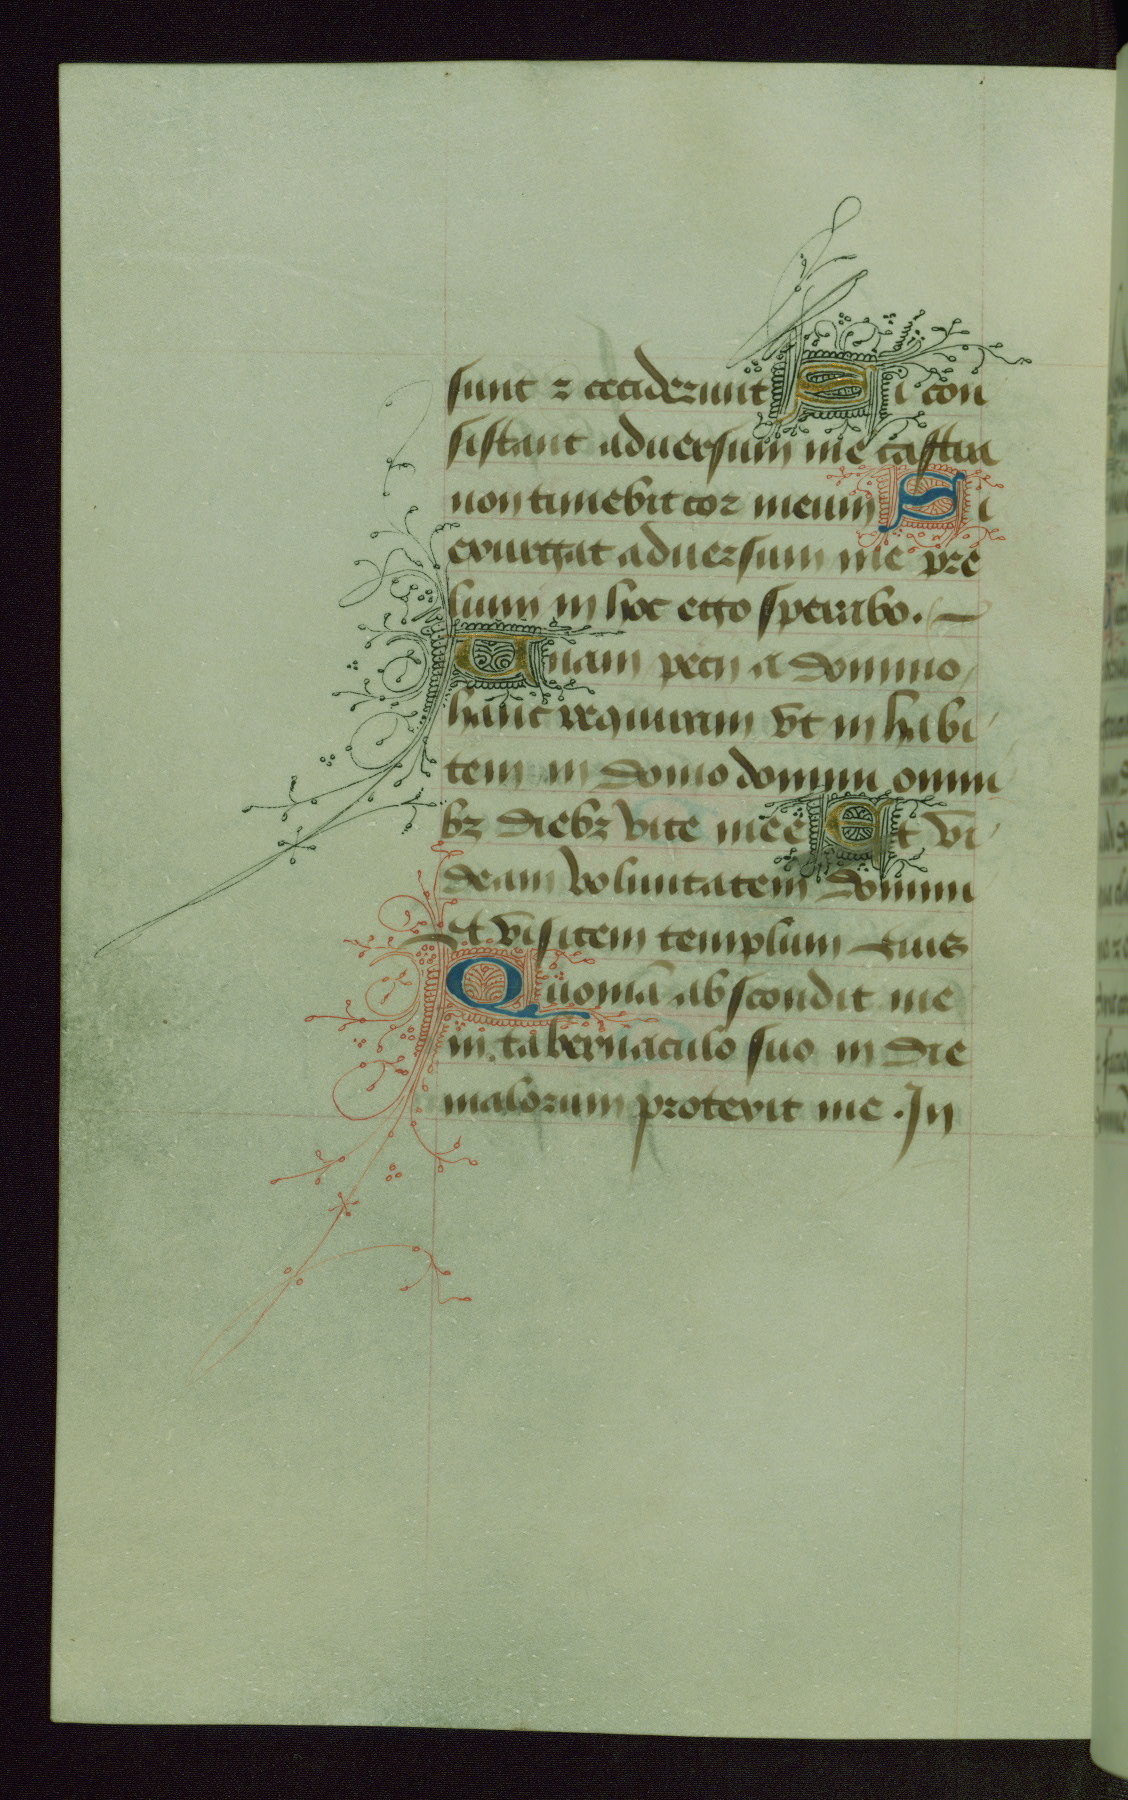 sunt ⁊ ceciderunt Si con
sistant aduersum me castra
non timebit cor meum Si
exurgat aduersum me pre
lium in hoc ego sperabo.
Unam pecij a domino
hanc requiram vt in habi
tem in domo domini omni
bꝫ diebꝫ vite mee Et vi
deam voluntatem domini
et visitem templum eius
Quoniā abscondit me
in tabernaculo suo in die
malorum protexit me. In